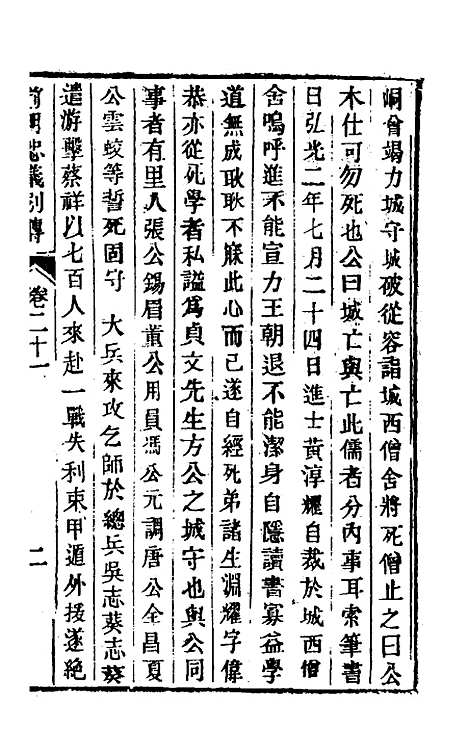 峒曾竭力城守城破從容詣城西僧舍將死僧止之曰公
未仕可勿死也公曰城亡與亡此儒者分內事耳索筆書
曰弘光二年七月二十四日進士黃淳耀自裁於城西僧
舍嗚呼進不能宣力王朝退不能潔身自隱讀書寡益學
道無成耿耿不寐此心而已遂自經死弟諸生淵耀字偉
恭亦從死學者私諡爲貞文先生方公之城守也與公同
事者有里人張公錫眉董公用員馮公元調唐公全昌夏
公雲蛟等誓死固守　大兵來攻乞師於總兵吳志葵志葵
遣游擊蔡祥以七百人來赴一戰失利束甲遁外援遂絕
前明忠義別傳　卷二十一　二